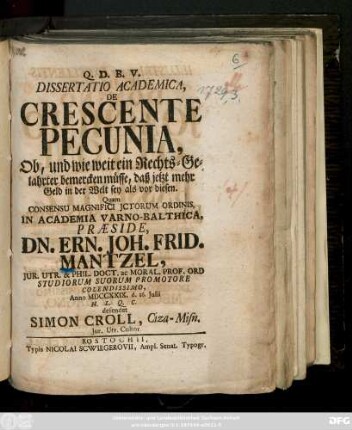 Q. D. B. V.
DISSERTATIO ACADEMICA,
DE
CRESCENTE
PECUNIA,
Ob, und wie weit ein Rechts-Ge-
lahrter bemercken müsse, daß jetzt mehr
Geld in der Welt sey als vor diesen.
Quam
CONSENSU MAGNIFICI JCTORUM ORDINIS,
IN ACADEMIA VARNO-BALTHICA,
PRÆSIDE,
DN. ERN. JOH. FRID.
MANTZEL,
JUR. UTR. & PHIL. DOCT. ac MORAL. PROF. ORD
STUDIORUM SUORUM PROMOTORE
COLENDISSIMO,
Anno MDCCXXIX. d. 16. Julii
H. L. Q. C.
defendet
SIMON CROLL, Ciza-Misn.
Jur. Utr. Cultor.
ROSTOCHII,
Typis NICOLAI SCWIEGEROVII, Ampl. Senat. Typogr.
6
1729,3
DFG